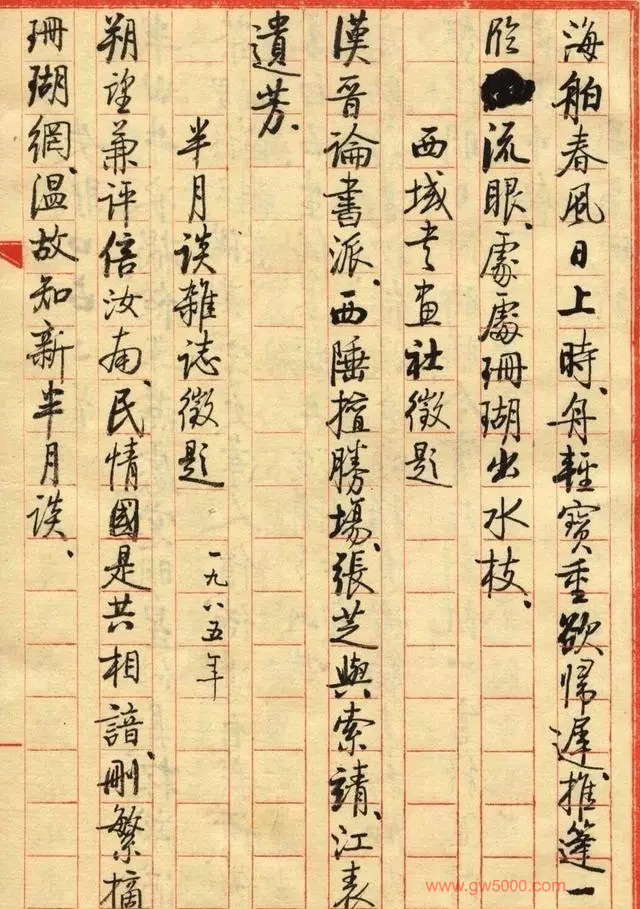 海舶春風日上時、舟輕寶重欲歸遲、推篷一
流眼、處處珊瑚出水枝、
西域書畫社徵題
漢晉論書派、西陲擅勝場、張芝與索靖、江表
遺芳、
半月談雜誌徵題 一九八五年
朔望兼評倍汝南、民情國是共相諳、刪繁摘
珊瑚網、溫故知新半月談、
www.gw5000.com